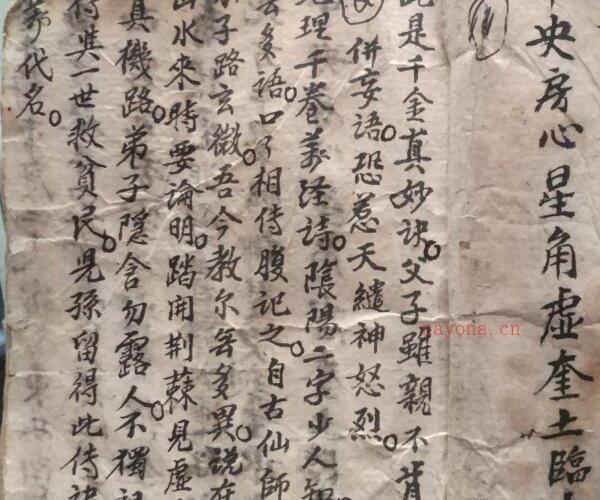 央房心星角虚奎土臨
此是千金真妙訣父子雖親不肯
併妄語恐惹天譴神怒烈
地理千卷萬经詩陰陽二字少人知
多語口口相传腹記之自古仙師
子路玄微吾今教尔無多異说在
山水來時要論明踏開荆蘇見虚
具機路弟子隱含勿露人不獨
得此一世救貧民兒孫留得此传訣
代名
nayona.cn